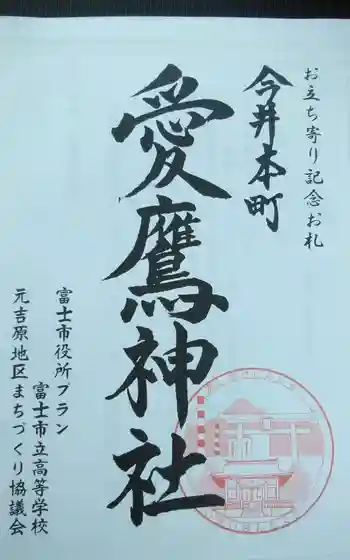 お立ち寄り記念お札
今井本町
愛鷹神社
富士市役所プラン
富士市立高等学校
元吉原地区まちづくり協議会